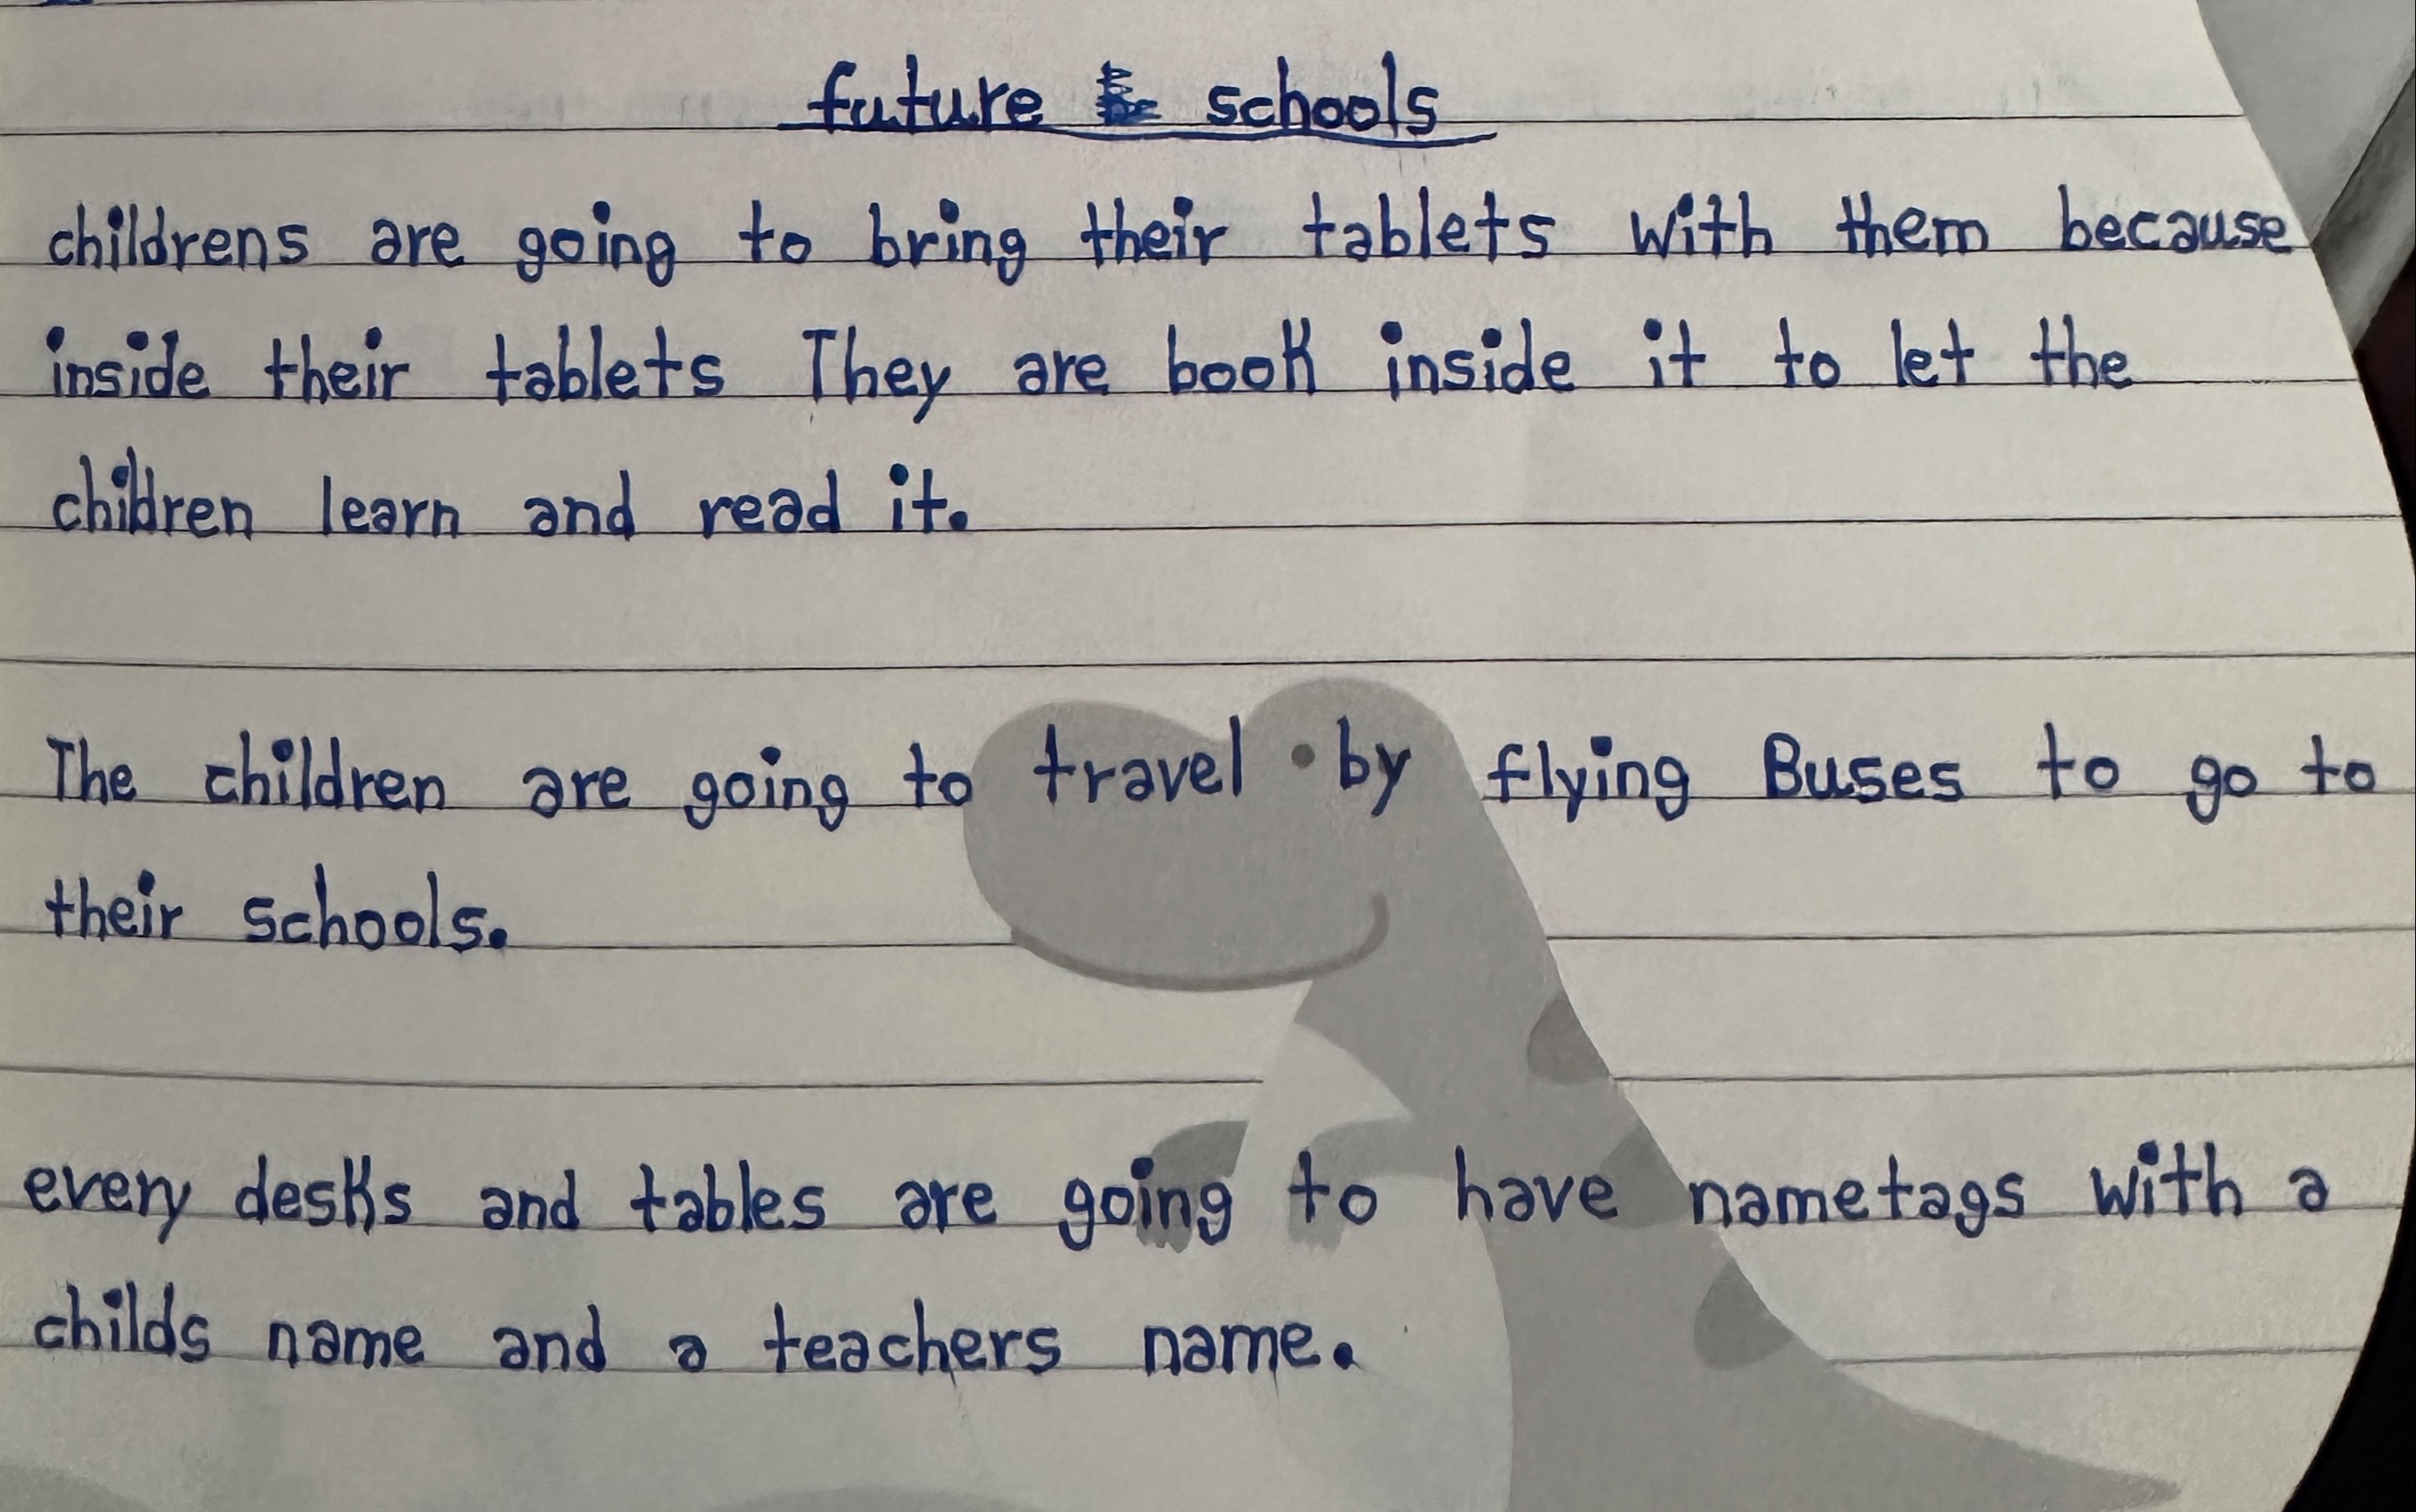 future schools
childrens are going to bring their tablets with them because
inside their tablets They are book inside it to let the
children learn and read it.
The children are going to travel by flying Buses to go to
their schools.
every desks and tables are going to have nametags with a
childs name and a teachers name.